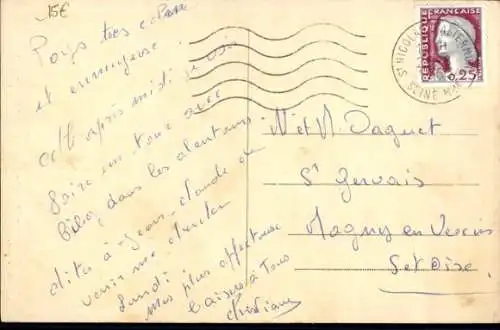 15€
Pays très
et ennuyeux
après midi je vais
faire un tour avec
dans les alentours
dites à Jean-Claude de
venir me chercher
Lundi
Mes plus affectueux
baisers à Tous
Christiane
REPUBLIQUE FRANÇAISE
0,25
ST NICOLAS
SEINE MME
M et M Daguet
St Gervais
Magny en Vexin
S et Oise